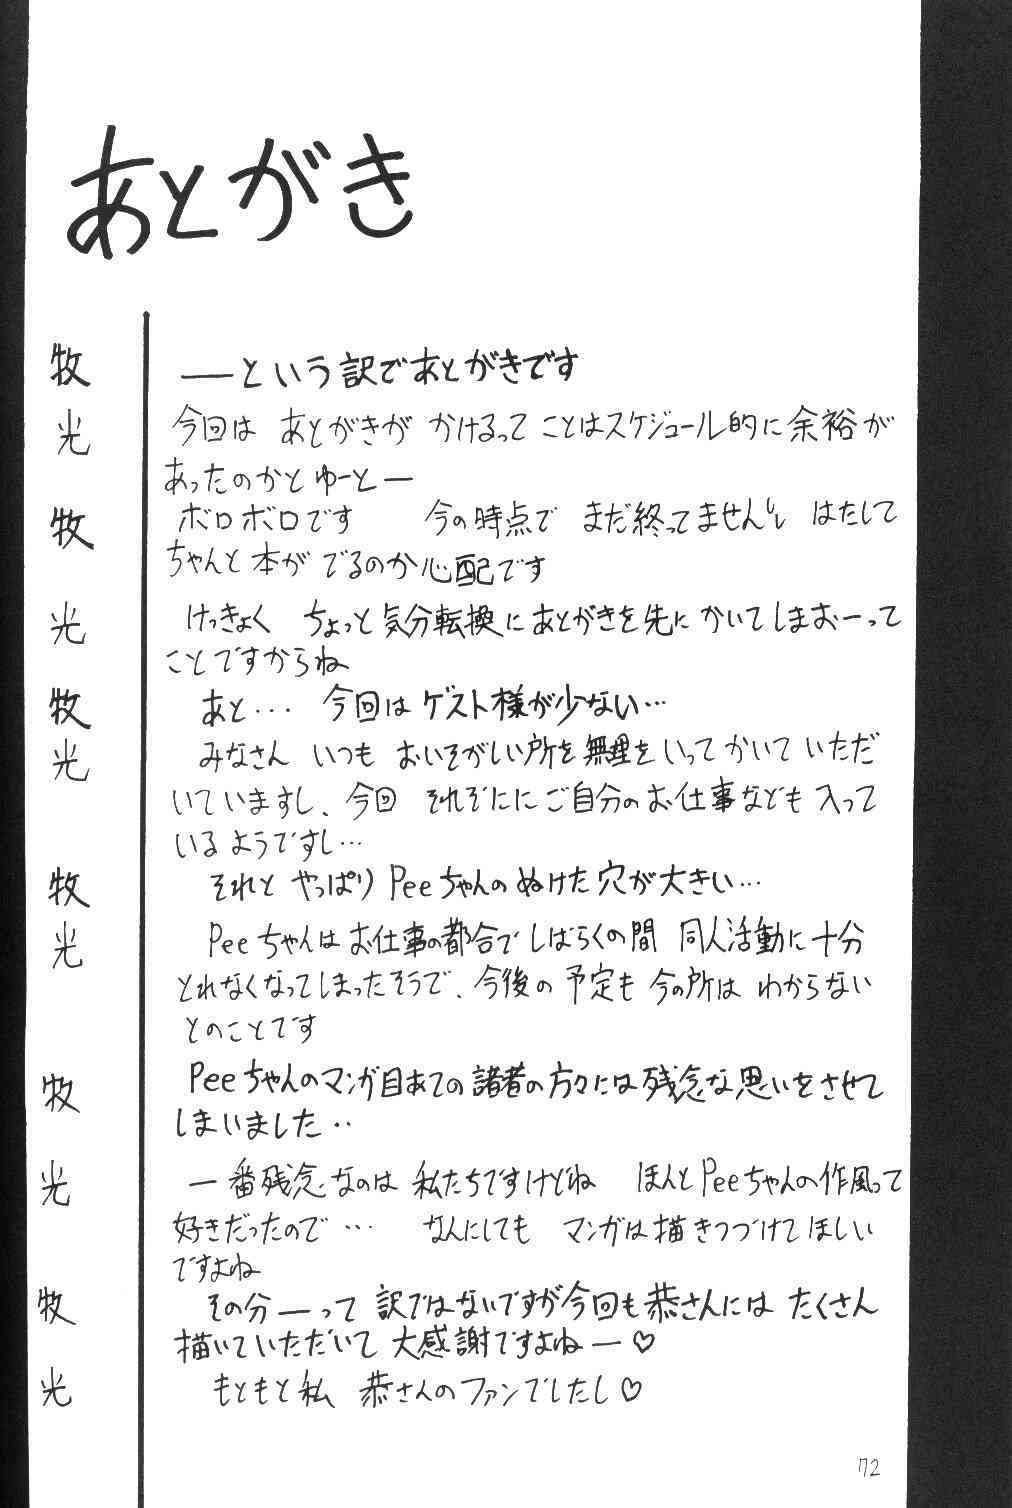 あとがき
牧 ——という訳であとがきです
光 今回は あとがきが かけるって ことはスケジュール的に余裕が
あったのかと ゆーとー
牧 ボロボロです 今の時点で まだ終ってませんし はたして
ちゃんと 本が でるのか心配です
光 けっきょく ちょっと気分転換にあとがきを先に かいてしまおーって
ことですからね
牧 あと・・・ 今回は ゲスト様が少ない…
光 みなさん いつも おいそがしい所を無理をいってかいていただ
いていますし、今回 それぞれにご自分のお仕事なども入って
いるようですし…
牧 それと やっぱり Peeちゃんの ぬけた穴が大きい…
光 Peeちゃんは お仕事の都合でしばらくの間 同人活動に十分
とれなくなってしまったそうで、今後の予定も 今の所は わからない
とのことです
牧 Peeちゃんのマンガ目あての諸者の方々には残念な思いをさせて
しまいました‥
光 一番残念なのは 私たちですけどね ほんと Peeちゃんの作風って
好きだったので… なんにしても マンガは描きつづけてほしい
ですよね
牧 その分ーって 訳ではないですが今回も恭さんには たくさん
描いていただいて 大感謝ですよねー♡
光 もともと私 恭さんのファンでしたし♡
72